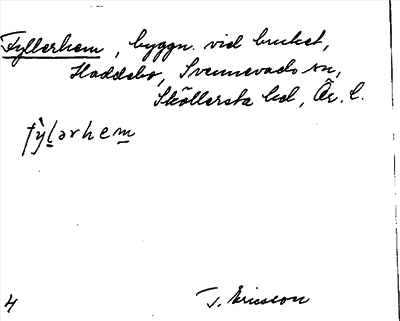 Fyllerhem, byggn. vid bruket,
Haddebo, Svennevads sn,
Sköllersta hd, Ör. l.
fỳḷərhem̱
4
T. Ericsson